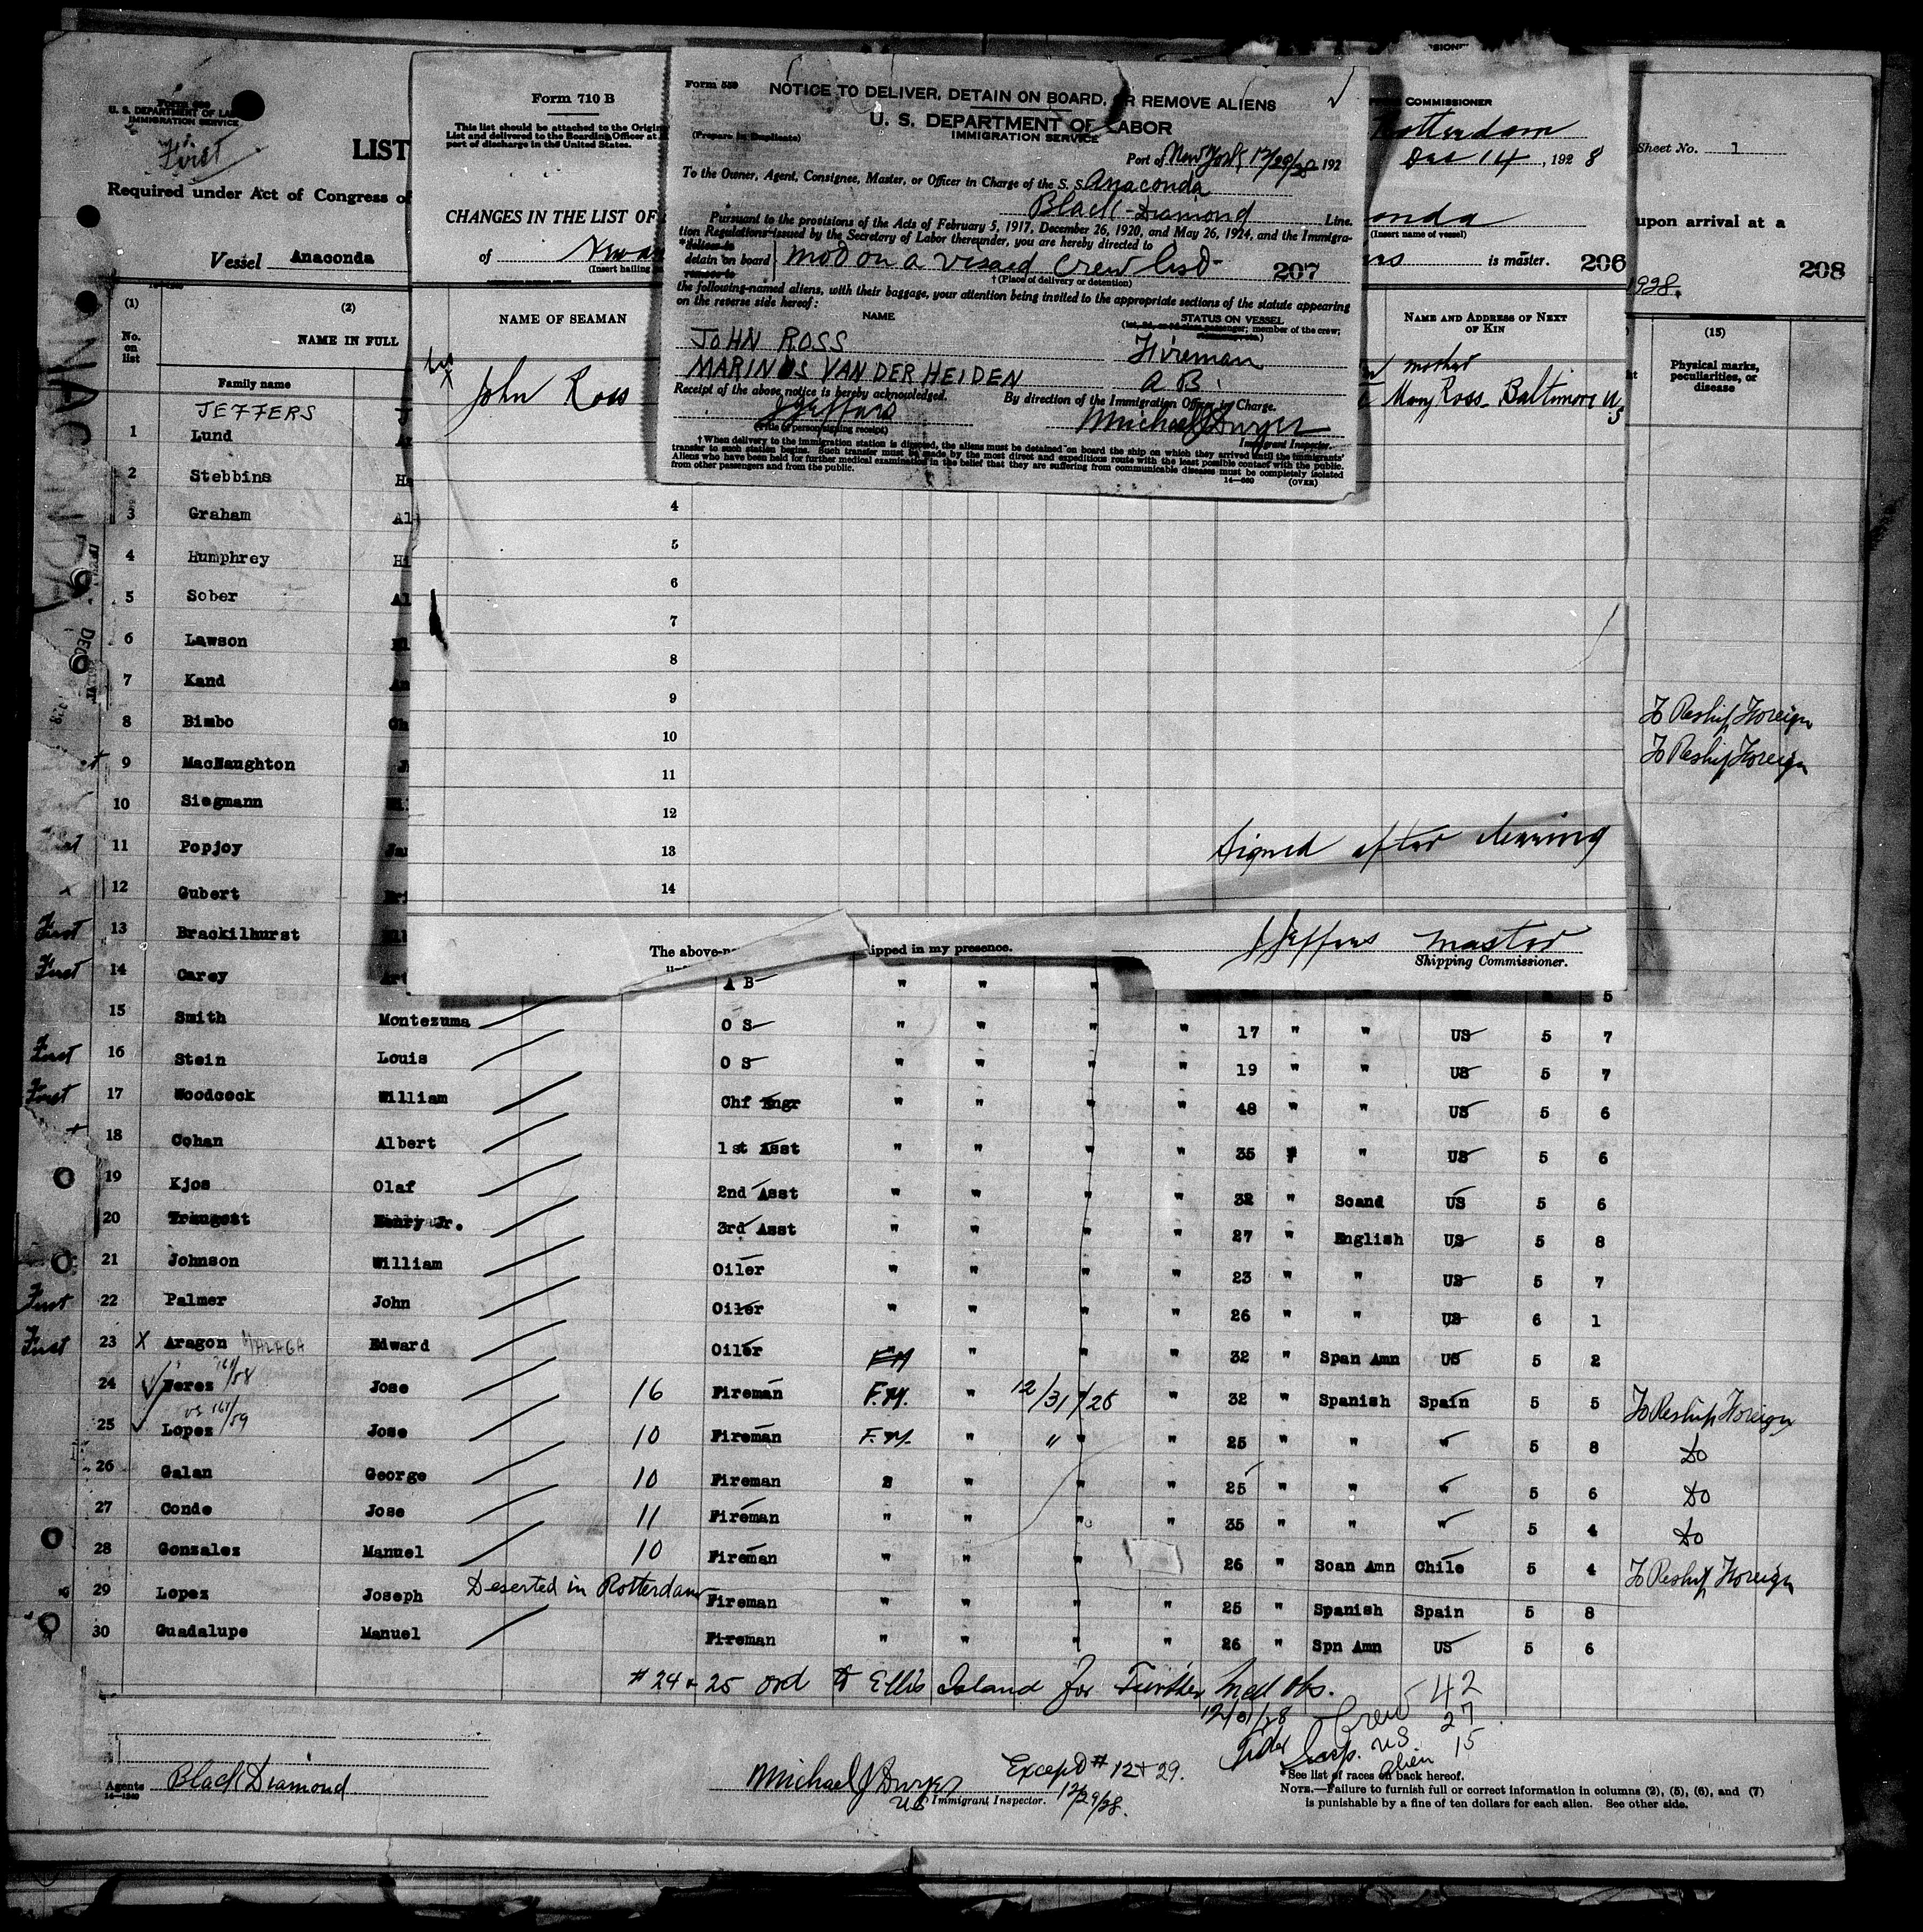 U. S. DEPARTMENT OF LAB
IMMIGRATION SERVICE
First
LIST
Required under Act of Congress of
Vessel Anaconda
(1) (2)
No. on list
NAME IN FULL
Family name
ANACONDA
Form 710 B
This list should be attached to the Origin
List and delivered to the Boarding Officer at
port of discharge in the United States.
CHANGES IN THE LIST OF
of
(Insert hailing
NAME OF SEAMAN
John Ross
Form 539
NOTICE TO DELIVER, DETAIN ON BOARD, OR REMOVE ALIENS
U. S. DEPARTMENT OF LABOR
IMMIGRATION SERVICE
(Prepare in Duplicate)
Port of New York, 12/29/28 192
To the Owner, Agent, Consignee, Master, or Officer in Charge of the S. S. Anaconda
Black-Diamond Line.
Pursuant to the provisions of the Acts of February 5, 1917, December 26, 1920, and May 26, 1924, and the Immigra-
tion Regulations issued by the Secretary of Labor thereunder, you are hereby directed to
*deliver to
detain on board
remove to
not on a visaed crew list 207
†(Place of delivery or detention)
the following-named aliens, with their baggage, your attention being invited to the appropriate sections of the statute appearing
on the reverse side hereof:
NAME STATUS ON VESSEL
(1st, 2d, or 3d class passenger; member of the crew;
JOHN ROSS Fireman
MARINUS VAN DER HEIDEN A B.
Receipt of the above notice is hereby acknowledged. By direction of the Immigration Officer in Charge.
J Jeffers Michael J Dwyer
(Title of person signing receipt) Immigrant Inspector.
†When delivery to the immigration station is directed, the aliens must be detained on board the ship on which they arrived until the immigrants'
transfer to such station begins. Such transfer must be made by the most direct and expeditious route with the least possible contact with the public.
Aliens who have been held for further medical examination in the belief that they are suffering from communicable diseases must be completely isolated
from other passengers and from the public.
14—660 (OVER)
COMMISSIONER
Rotterdam
Dec 14, 1928
onda
(Insert name of vessel)
is master. 206
NAME AND ADDRESS OF NEXT
OF KIN
mother
Mary Ross Baltimore U.S
Sheet No. 1
upon arrival at a
208
1928.
(15)
Physical marks,
peculiarities, or
disease
JEFFERS
1 Lund
2 Stebbins
3 Graham
4 Humphrey
5 Sober
6 Lawson
7 Kand
8 Bimbo To Reship Foreign
9 MacNaughton To Reship Foreign
10 Siegmann
11 Popjoy
12 Gubert
First 13 Brackilhurst
First 14 Carey
4
5
6
7
8
9
10
11
12
13
14
Signed after clearing
The above-n ipped in my presence.
J Jeffers Master
Shipping Commissioner.
A B " " " 5
15 Smith Montezuma O S " " " " 17 " " US 5 7
First 16 Stein Louis O S " " " " 19 " " US 5 7
First 17 Woodcock William Chf Engr " " " " 48 " " US 5 6
18 Cohan Albert 1st Asst " " " " 35 " " US 5 6
19 Kjos Olaf 2nd Asst " " " " 32 " Scand US 5 6
20 Traugott Henry Jr. 3rd Asst " " " " 27 " English US 5 8
21 Johnson William Oiler " " " " 23 " " US 5 7
First 22 Palmer John Oiler " " " " 26 " " US 6 1
First 23 X Aragon MALAGA Edward Oiler " " " " 32 " Span Amn US 5 2
24 Perez Jose 16 Fireman F.M. " 12/31/28 " 32 " Spanish Spain 5 5 To Reship Foreign
25 Lopez Jose 10 Fireman F.M. " " " 25 " " " 5 8 Do
26 Galan George 10 Fireman " " " 25 " " " 5 6 Do
27 Conde Jose 11 Fireman " " " " 35 " " " 5 4 Do
28 Gonzales Manuel 10 Fireman " " " 26 " Soan Amn Chile 5 4 To Reship Foreign
29 Lopez Joseph Deserted in Rotterdam Fireman " " " " 25 " Spanish Spain 5 8
30 Guadalupe Manuel Fireman " " " " 26 " Spn Amn US 5 6
#24 & 25 ord to Ellis Island for Further Med Obs.
12/31/28
Crew 42
US 27
alien 15
Agents Black Diamond
Michael J Dwyer
US Immigrant Inspector.
Except # 12 + 29.
12/29/28.
*See list of races on back hereof.
NOTE.—Failure to furnish full or correct information in columns (2), (5), (6), and (7)
is punishable by a fine of ten dollars for each alien. See other side.